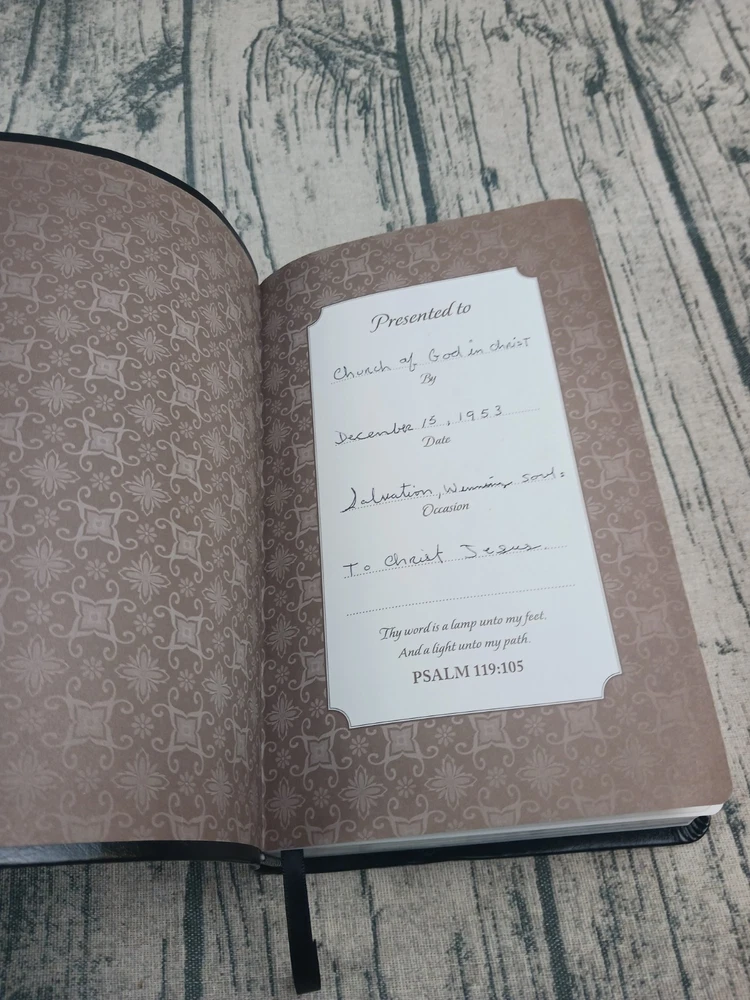 Presented to
Church of God in christ
By
December 15, 1953
Date
Salvation, Winning souls
Occasion
To Christ Jesus.
Thy word is a lamp unto my feet.
And a light unto my path.
PSALM 119:105